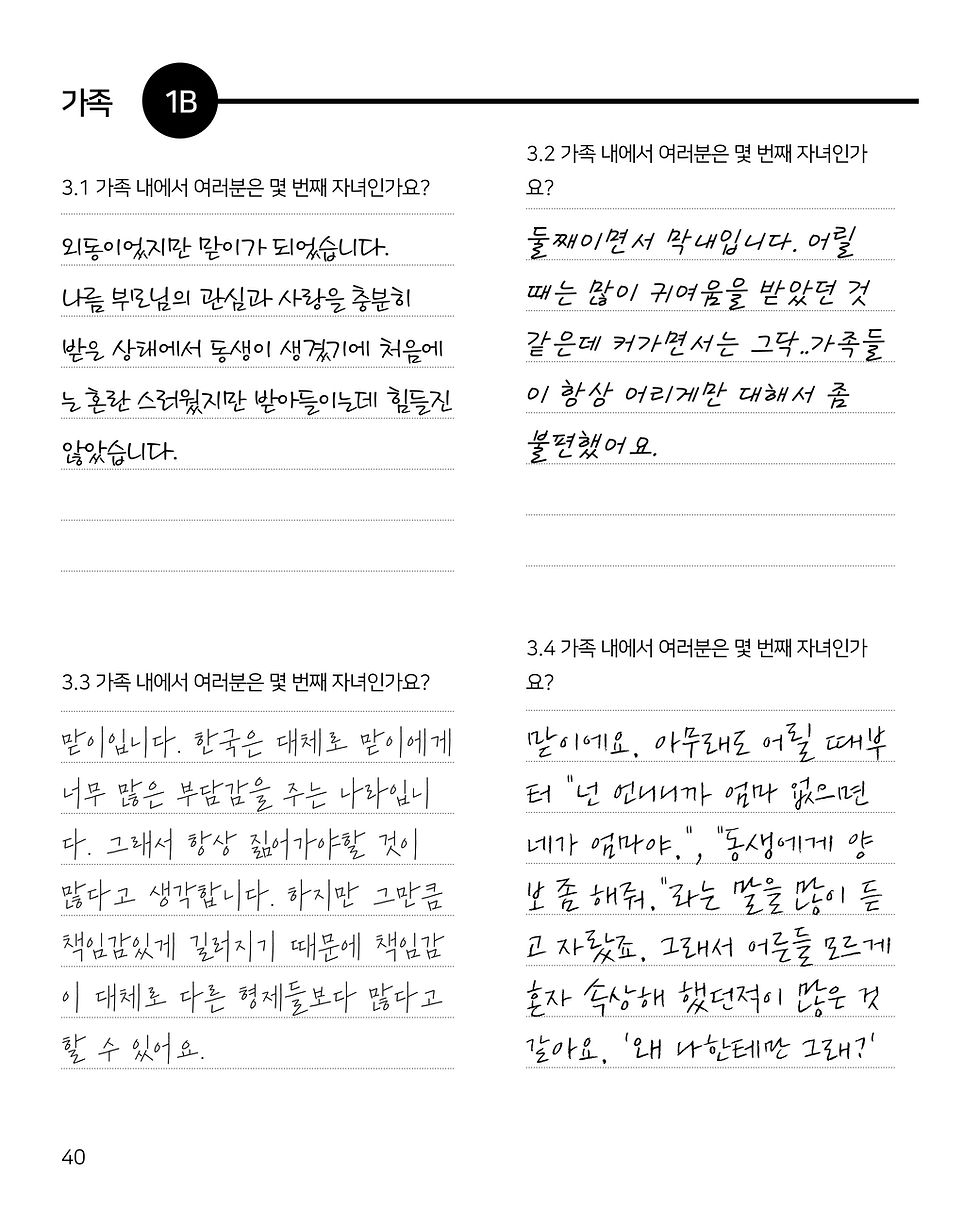 가족 1B
3.1 가족 내에서 여러분은 몇 번째 자녀인가요?
외동이었지만 맏이가 되었습니다.
나름 부모님의 관심과 사랑을 충분히
받은 상태에서 동생이 생겼기에 처음에
는 혼란 스러웠지만 받아들이는데 힘들진
않았습니다.
3.2 가족 내에서 여러분은 몇 번째 자녀인가
요?
둘째이면서 막내입니다. 어릴
때는 많이 귀여움을 받았던 것
같은데 커가면서는 그닥..가족들
이 항상 어리게만 대해서 좀
불편했어요.
3.3 가족 내에서 여러분은 몇 번째 자녀인가요?
맏이입니다. 한국은 대체로 맏이에게
너무 많은 부담감을 주는 나라입니
다. 그래서 항상 짊어가야할 것이
많다고 생각합니다. 하지만 그만큼
책임감있게 길러지기 때문에 책임감
이 대체로 다른 형제들보다 많다고
할 수 있어요.
3.4 가족 내에서 여러분은 몇 번째 자녀인가
요?
맏이에요. 아무래도 어릴 때부
터 "넌 언니니까 엄마 없으면
네가 엄마야.", "동생에게 양
보 좀 해줘."라는 말을 많이 듣
고 자랐죠. 그래서 어른들 모르게
혼자 속상해 했던적이 많은 것
같아요. '왜 나한테만 그래?'
40